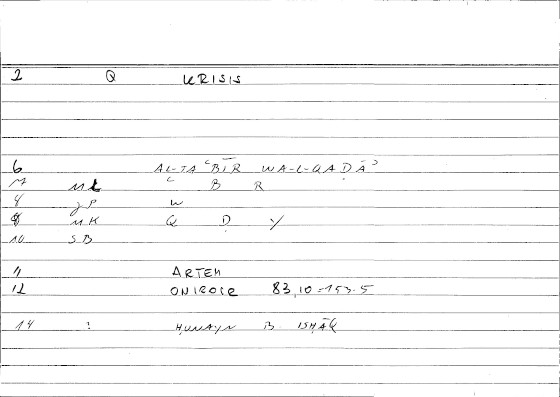 2 Q KRISIS
6 AL-TAʿBĪR WA-L-QAḌĀʾ
7 ML ʿ B R
8 JP W
9 MK Q Ḍ Y
10 SB
11 ARTEM
12 ONIROCR 83,10-153.5
14 : ḤUNAYN B. ISḤĀQ